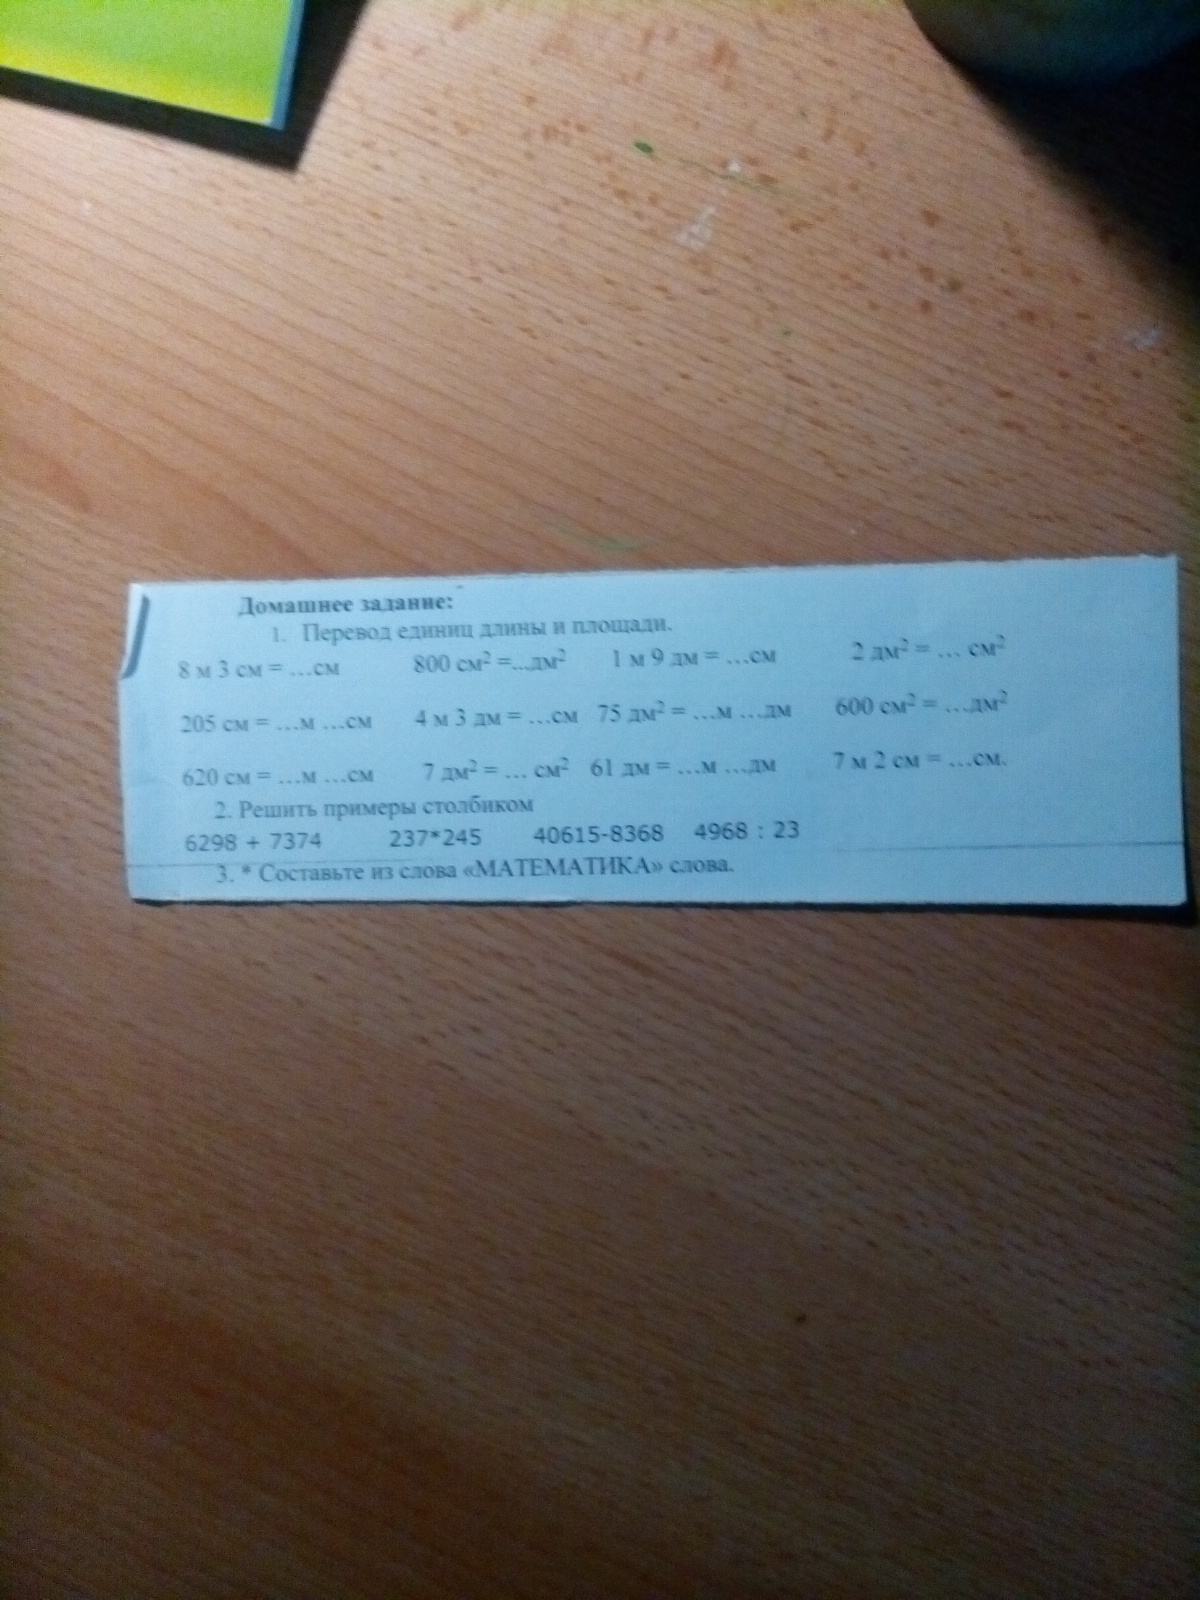 Домашнее задание:
1. Перевод единиц длины и площади.
8 м 3 см = …см 800 см² =...дм² 1 м 9 дм = …см 2 дм² = … см²
205 см = …м …см 4 м 3 дм = …см 75 дм² = …м …дм 600 см² = …дм²
620 см = …м …см 7 дм² = … см² 61 дм = …м …дм 7 м 2 см = …см.
2. Решить примеры столбиком
6298 + 7374 237*245 40615-8368 4968 : 23
3. * Составьте из слова «МАТЕМАТИКА» слова.